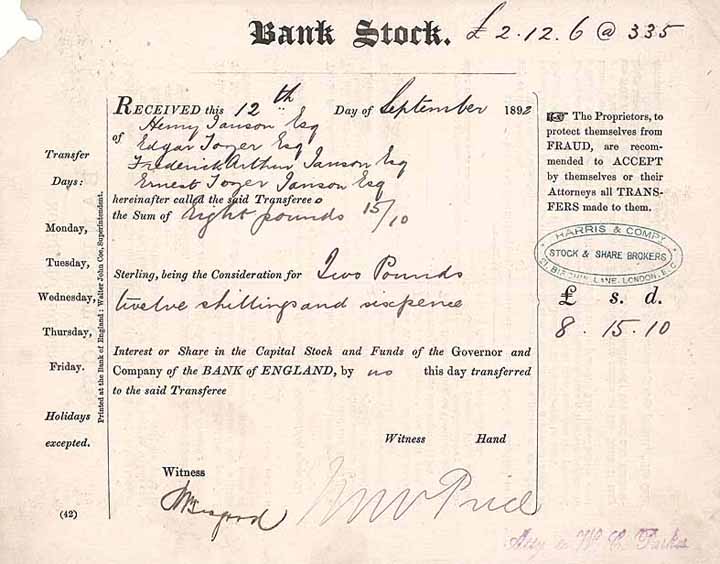 Bank Stock. £2.12.6 @ 335
RECEIVED this 12th Day of September 1892
of Henry Janson Esq
Edgar Tozer Esq
Frederick Arthur Janson Esq
Ernest Tozer Janson Esq
hereinafter called the said Transferees
the Sum of Eight pounds 15/10
Sterling, being the Consideration for Two Pounds
twelve shillings and sixpence
Interest or Share in the Capital Stock and Funds of the Governor and
Company of the BANK of ENGLAND, by us this day transferred
to the said Transferee
Witness Hand
Witness
Price
(42)
Transfer
Days:
Monday,
Tuesday,
Wednesday,
Thursday,
Friday.
Holidays
excepted.
Printed at the Bank of England: Walter John Coe, Superintendent.
☞ The Proprietors, to
protect themselves from
FRAUD, are recom-
mended to ACCEPT
by themselves or their
Attorneys all TRANS-
FERS made to them.
HARRIS & COMPY
STOCK & SHARE BROKERS
21, BIRCHIN LANE, LONDON, E.C
£ s. d.
8 . 15 . 10
Atty to W. C. Parker